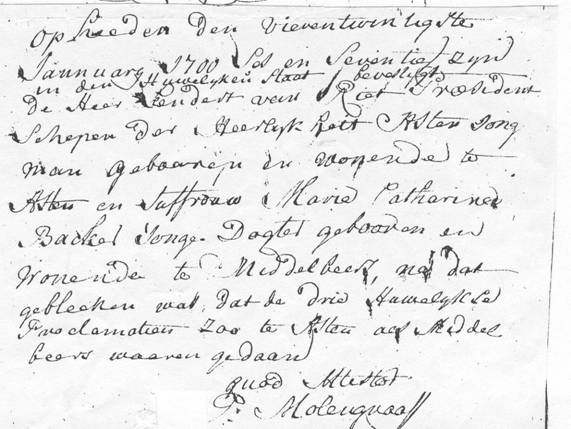 op heeden den vierentwintigste
Jannuary 1700 ses en seventig zyn
in den Huwelyken staat bevestigt
De Heer Lendert van Riet President
Schepen der Heerlykheit Asten Jong
man gebooren en wonende te
Asten en Juffrouw Maria Catharina
Backes Jonge Dogter gebooren en
wonende te Middelbeers, na dat
gebleeken was, dat de drie Huwelykse
Proclamatien zoo te Asten als Middel
beers waaren gedaan
quod Attestor
P. Molengraaff